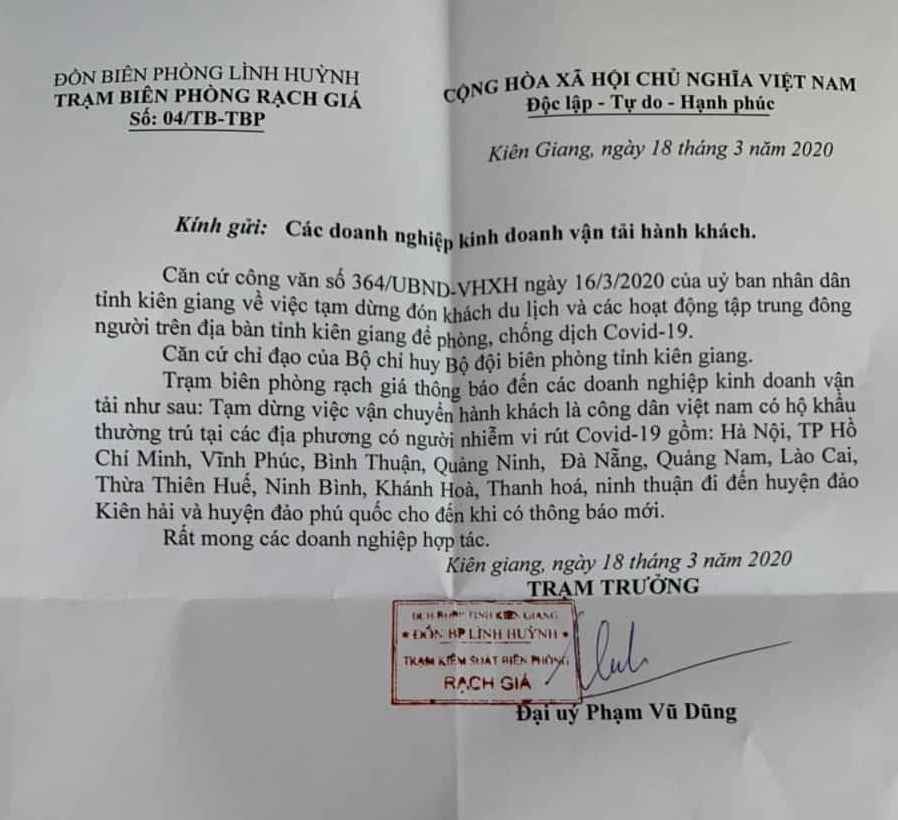 ĐỒN BIÊN PHÒNG LÌNH HUỲNH
TRẠM BIÊN PHÒNG RẠCH GIÁ
Số: 04/TB-TBP
CỘNG HÒA XÃ HỘI CHỦ NGHĨA VIỆT NAM
Độc lập - Tự do - Hạnh phúc
Kiên Giang, ngày 18 tháng 3 năm 2020
Kính gửi: Các doanh nghiệp kinh doanh vận tải hành khách.
Căn cứ công văn số 364/UBND-VHXH ngày 16/3/2020 của uỷ ban nhân dân
tỉnh kiên giang về việc tạm dừng đón khách du lịch và các hoạt động tập trung đông
người trên địa bàn tỉnh kiên giang để phòng, chống dịch Covid-19.
Căn cứ chỉ đạo của Bộ chỉ huy Bộ đội biên phòng tỉnh kiên giang.
Trạm biên phòng rạch giá thông báo đến các doanh nghiệp kinh doanh vận
tải như sau: Tạm dừng việc vận chuyển hành khách là công dân việt nam có hộ khẩu
thường trú tại các địa phương có người nhiễm vi rút Covid-19 gồm: Hà Nội, TP Hồ
Chí Minh, Vĩnh Phúc, Bình Thuận, Quảng Ninh, Đà Nẵng, Quảng Nam, Lào Cai,
Thừa Thiên Huế, Ninh Bình, Khánh Hoà, Thanh hoá, ninh thuận đi đến huyện đảo
Kiên hải và huyện đảo phú quốc cho đến khi có thông báo mới.
Rất mong các doanh nghiệp hợp tác.
Kiên giang, ngày 18 tháng 3 năm 2020
TRẠM TRƯỞNG
TỈNH KIÊN GIANG
ĐỒN BP LÌNH HUỲNH
TRẠM KIỂM SOÁT BIÊN PHÒNG
RẠCH GIÁ
Đại uý Phạm Vũ Dũng